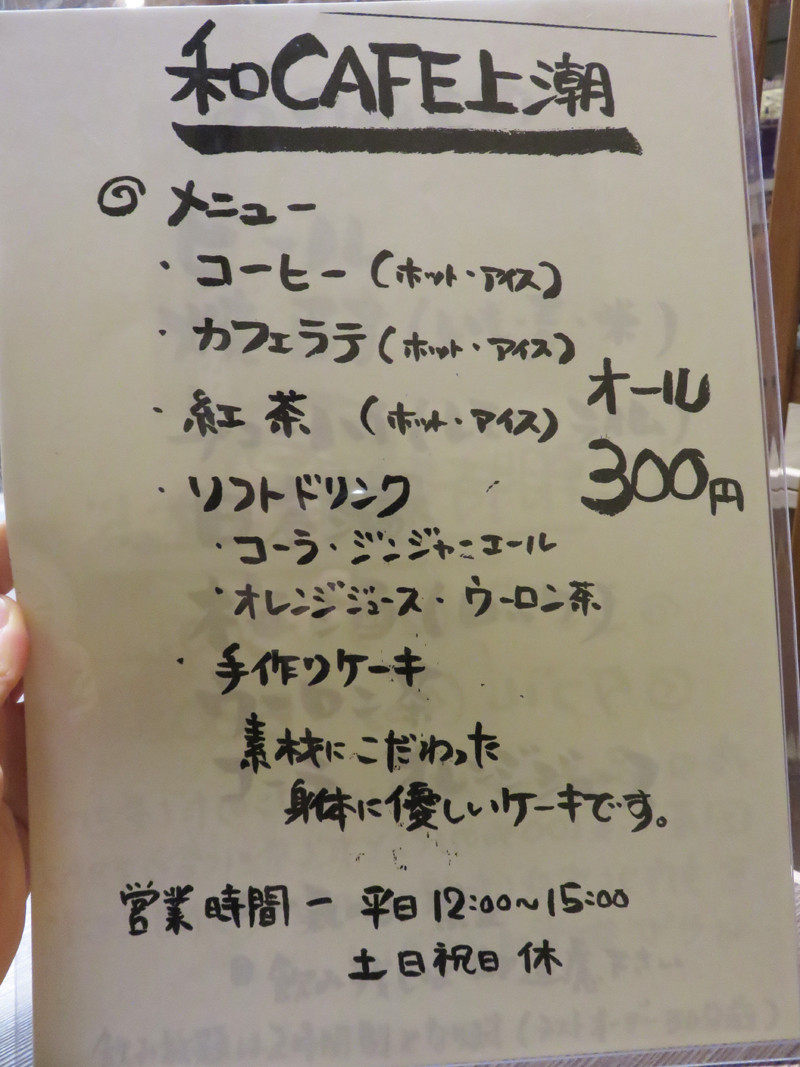 和CAFE上潮
メニュー
・コーヒー(ホット・アイス)
・カフェラテ(ホット・アイス)
・紅茶 (ホット・アイス)
オール
300円
・ソフトドリンク
・コーラ・ジンジャーエール
・オレンジジュース・ウーロン茶
・手作りケーキ
素材にこだわった
身体に優しいケーキです。
営業時間ー平日12:00~15:00
土日祝日 休